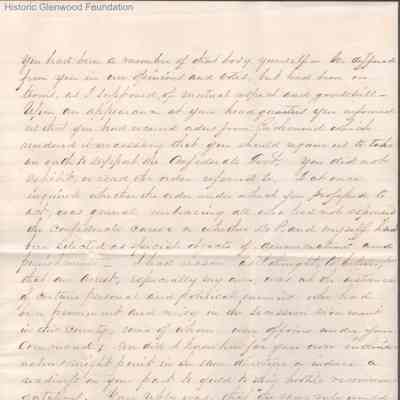 Historic Glenwood Foundation
you had been a member of that body yourself - We differed
from you in our opinions and votes, but had been on
terms, as I supposed of mutual respect and goodwill -
Upon our appearance at your head quarters you informed
us that you had received orders from Richmond which
rendered it necessary that you should require us to take
an oath to support the Confederate Govt. You did not
exhibit or read the order referred to. I at once
inquired whether the order under which you professed to
act, was general embracing all who had not espoused
the Confederate cause or whether Dr. and myself had
been selected as special objects of denunciation and
punishment - I had reason as I thought, to believe,
that our arrest, especially my own, was at the instance
of certain personal and political enemies who had
been prominent and noisy in the secession movement
in this County, some of whom were officers under your
Command;
point in the same direction
on your part to yield to this hostile